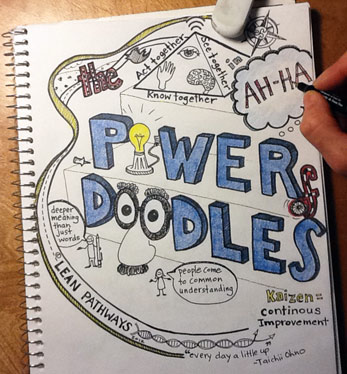 the
Act together
See together
Know together
AH-HA
POWER &
DOODLES
deeper
meaning
than
just
words
people come
to common
understanding
© LEAN PATHWAYS
Kaizen =
continous
Improvement
"every day a little up"
-Taichii Ohno